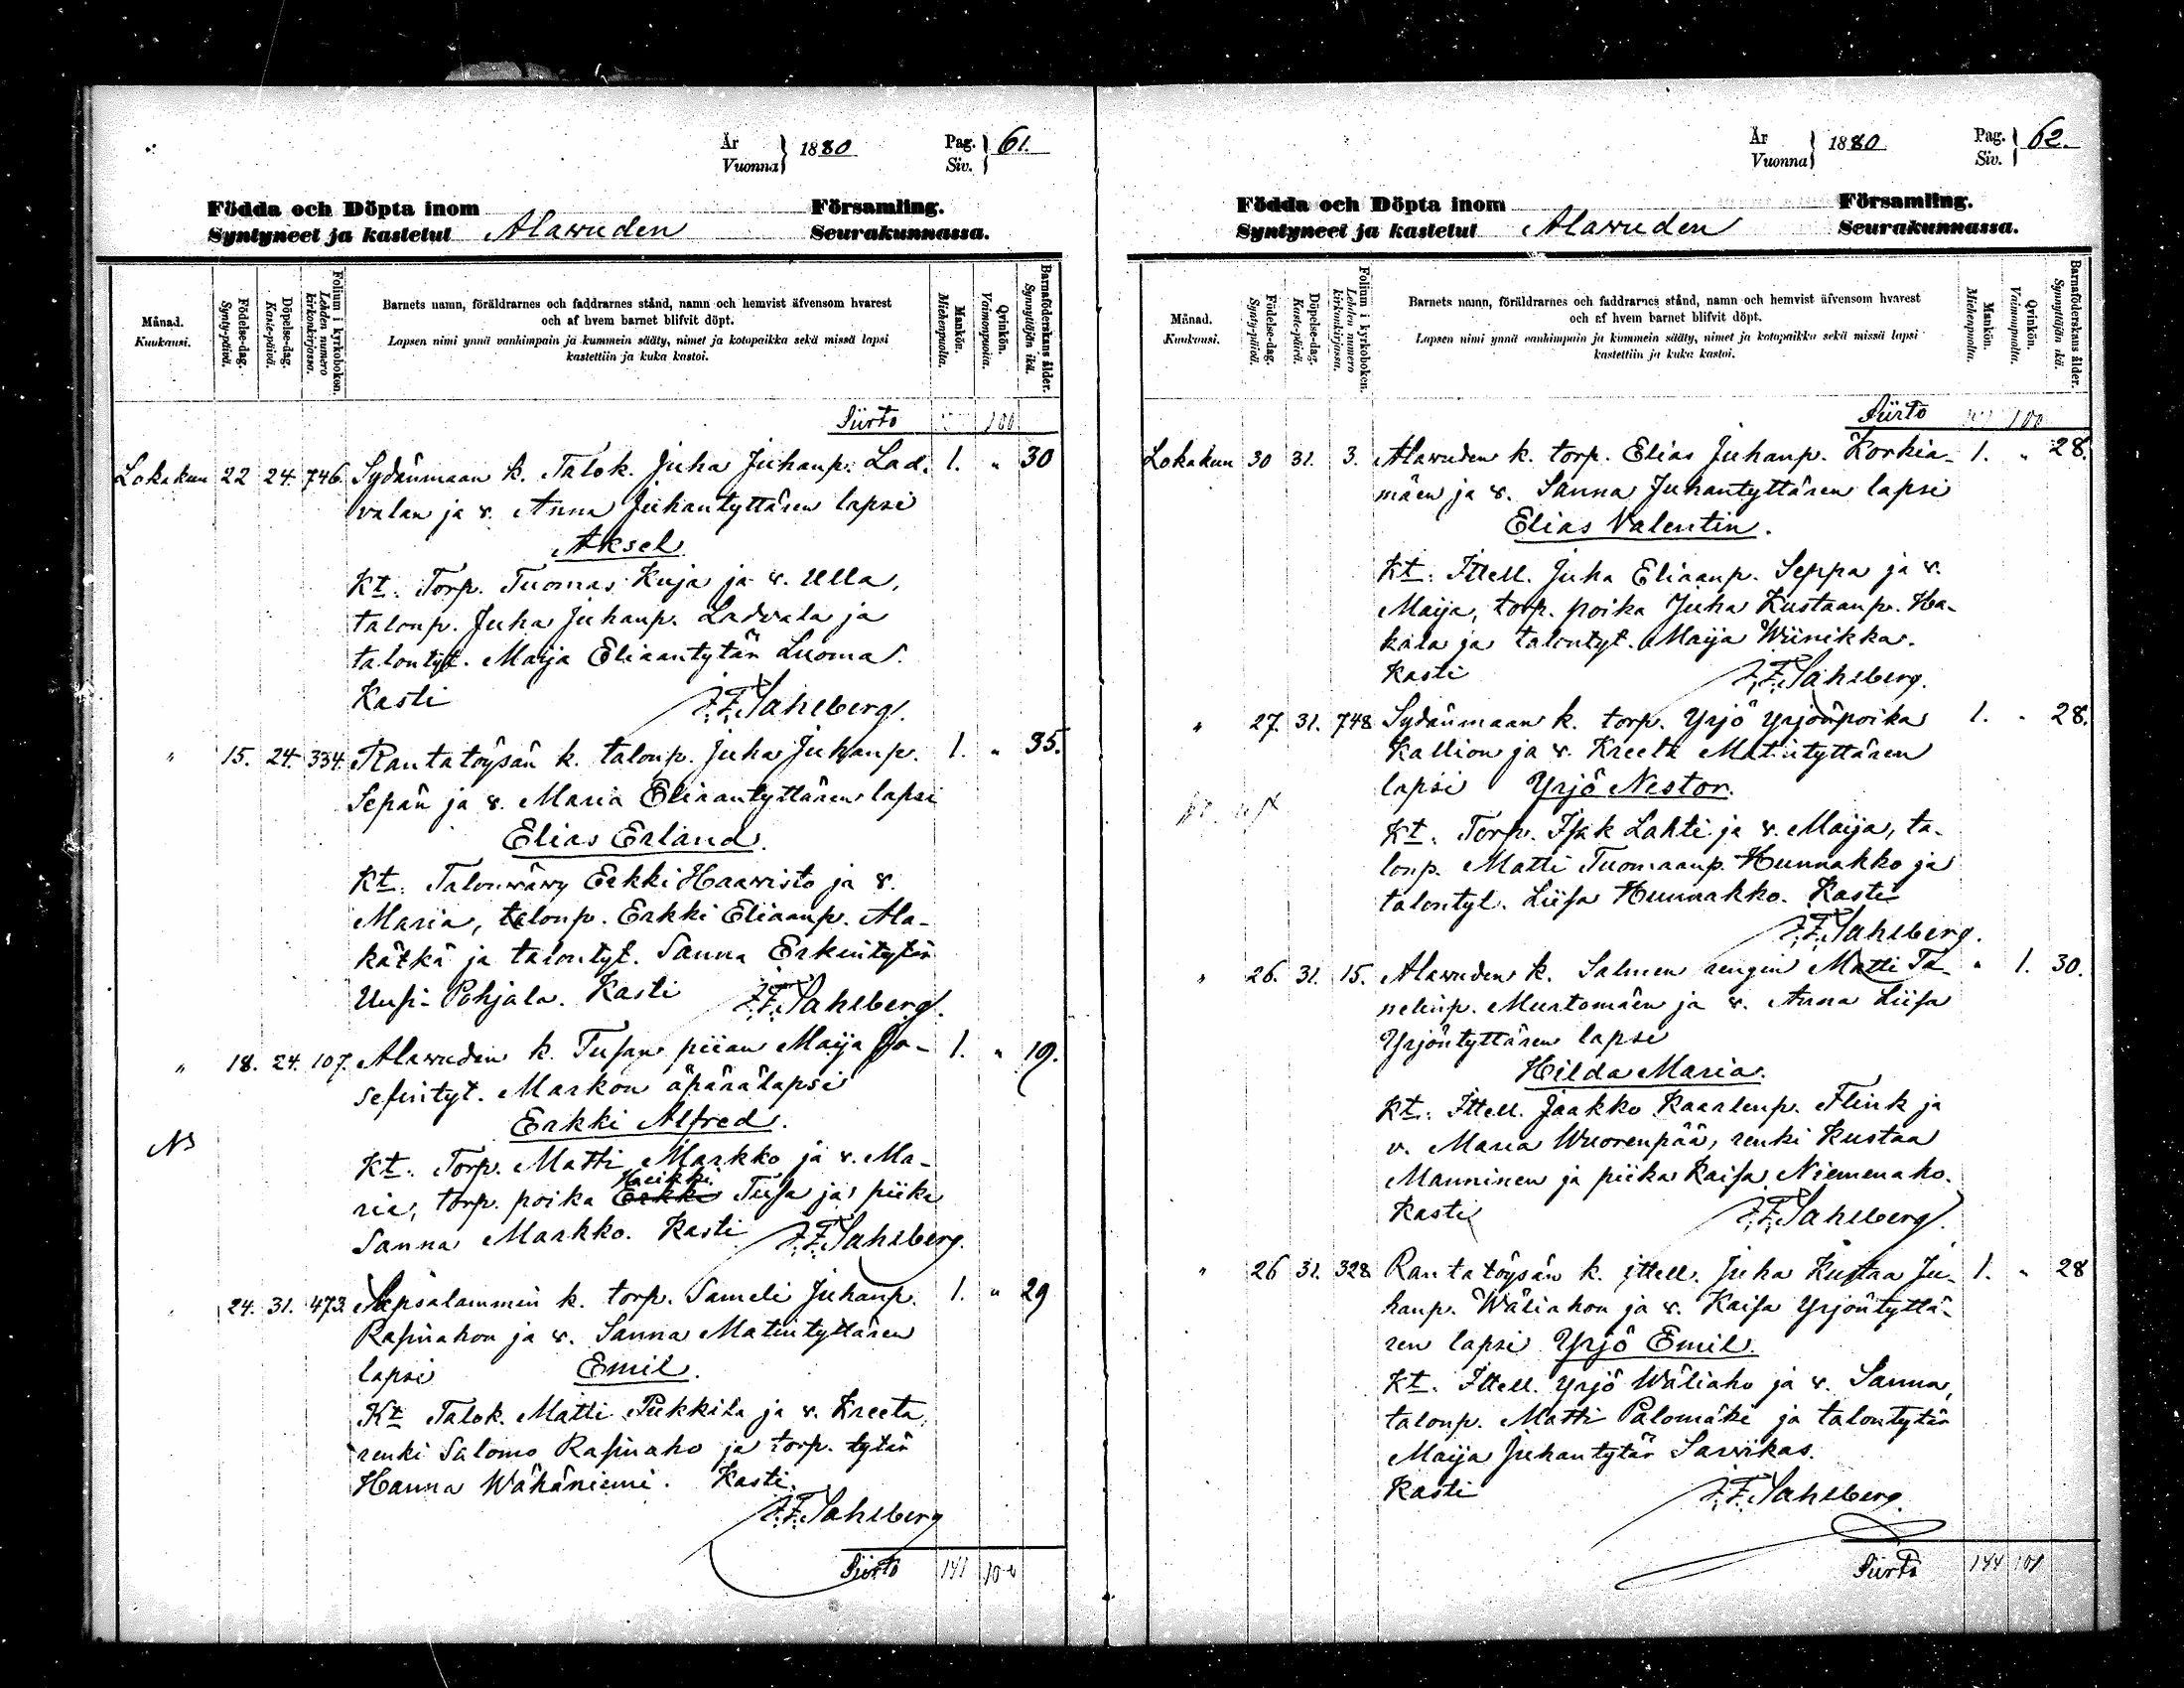 År
Vuonna } 1880 Pag.
Siv. } 61.
Födda och Döpta inom Församling.
Syntyneet ja kastetut Alawuden Seurakunnassa.
Månad.
Kuukausi.
Födelse-dag.
Synty-päivä.
Döpelse-dag.
Kaste-päivä.
Folium i kyrkoboken.
Lehden numero
kirkonkirjassa.
Barnets namn, föräldrarnes och faddrarnes stånd, namn och hemvist äfvensom hvarest
och af hvem barnet blifvit döpt.
Lapsen nimi ynnä vanhimpain ja kummein sääty, nimet ja kotopaikka sekä missä lapsi
kastettiin ja kuka kastoi.
Mankön.
Miehenpuolta.
Qvinkön.
Vaimonpuolta.
Barnaföderskans ålder.
Synnyttäjän ikä.
Siirto 100
Lokakuu 22 24. 746. Sydänmaan k. Talok. Juha Juhanp. Lad- 1. " 30
valan ja v. Anna Juhantyttären lapsi
Aksel
Kt. Torp. Tuomas Kuja ja v. Ulla,
talonp. Juha Juhanp. Ladvala ja
talontyt. Maija Eliaantytär Luoma.
Kasti J.F. Sahlberg.
" 15. 24. 334. Rantatöysän k. talonp. Juha Juhanp. 1. " 35.
Sepän ja v. Maria Eliaantyttären lapsi
Elias Erland.
Kt. Talonwäwy Erkki Haawisto ja v.
Maria, talonp. Erkki Eliaanp. Ala-
kätkä ja talontyt. Sanna Erkintytär
Uusi-Pohjala. Kasti J.F. Sahlberg.
" 18. 24. 107. Alawuden k. Tusan piian Maija Jo- 1. " 19.
sefintyt. Markon äpärälapsi
Erkki Alfred.
Ns
Kt. Torp. Matti Markko ja v. Ma-
Heikki
ria, torp. poika Erkki Tusa ja piika
Sanna Markko. Kasti J.F. Sahlberg.
" 24. 31. 473. Sapsalammin k. torp. Sameli Juhanp. 1. " 29
Rasinahon ja v. Sanna Matintyttären
lapsi Emil.
Kt Talok. Matti Pukkila ja v. Kreeta,
renki Salomo Rasinaho ja torp. tytär
Hanna Wähäniemi. Kasti
J.F. Sahlberg
Siirto 141 100
År
Vuonna } 1880 Pag.
Siv. } 62.
Födda och Döpta inom Församling.
Syntyneet ja kastetut Alawuden Seurakunnassa.
Månad.
Kuukausi.
Födelse-dag.
Synty-päivä.
Döpelse-dag.
Kaste-päivä.
Folium i kyrkoboken.
Lehden numero
kirkonkirjassa.
Barnets namn, föräldrarnes och faddrarnes stånd, namn och hemvist äfvensom hvarest
och af hvem barnet blifvit döpt.
Lapsen nimi ynnä vanhimpain ja kummein sääty, nimet ja kotopaikka sekä missä lapsi
kastettiin ja kuka kastoi.
Mankön.
Miehenpuolta.
Qvinkön.
Vaimonpuolta.
Barnaföderskans ålder.
Synnyttäjän ikä.
Siirto 100
Lokakuu 30 31. 3. Alawuden k. torp. Elias Juhanp. Korkia- 1. " 28.
mäen ja v. Sanna Juhantyttären lapsi
Elias Valentin.
Kt. Ittell. Juha Eliaanp. Seppa ja v.
Maija, torp. poika Juha Kustaanp. Ha-
kala ja talontyt. Maija Wiinikka.
Kasti J.F. Sahlberg.
" 27. 31. 748 Sydänmaan k. torp. Yrjö Yrjönpoika 1. " 28.
Kallion ja v. Kreeta Matintyttären
lapsi Yrjö Nestor.
Kt. Torp. Isak Lahti ja v. Maija, ta-
lonp. Matti Tuomaanp. Hunnakko ja
talontyt. Liisa Hunnakko. Kasti
J.F. Sahlberg.
" 26. 31. 15. Alawuden k. Salmen rengin Matti Ta- " 1. 30.
nelinp. Murtomäen ja v. Anna Liisa
Yrjöntyttären lapsi
Hilda Maria.
Kt. Ittell. Jaakko Kaarlenp. Flink ja
v. Maria Wuorenpää, renki Kustaa
Manninen ja piika Kaisa Niemenaho.
Kasti J.F. Sahlberg.
" 26 31. 328 Rantatöysän k. ittell. Juha Kustaa Ju- 1. " 28
hanp. Wäliahon ja v. Kaisa Yrjöntyttä-
ren lapsi Yrjö Emil.
Kt. Ittell. Yrjö Wäliaho ja v. Sanna,
talonp. Matti Palomäki ja talontytär
Maija Juhantytär Sarvikas.
Kasti J.F. Sahlberg.
Siirto 144 101